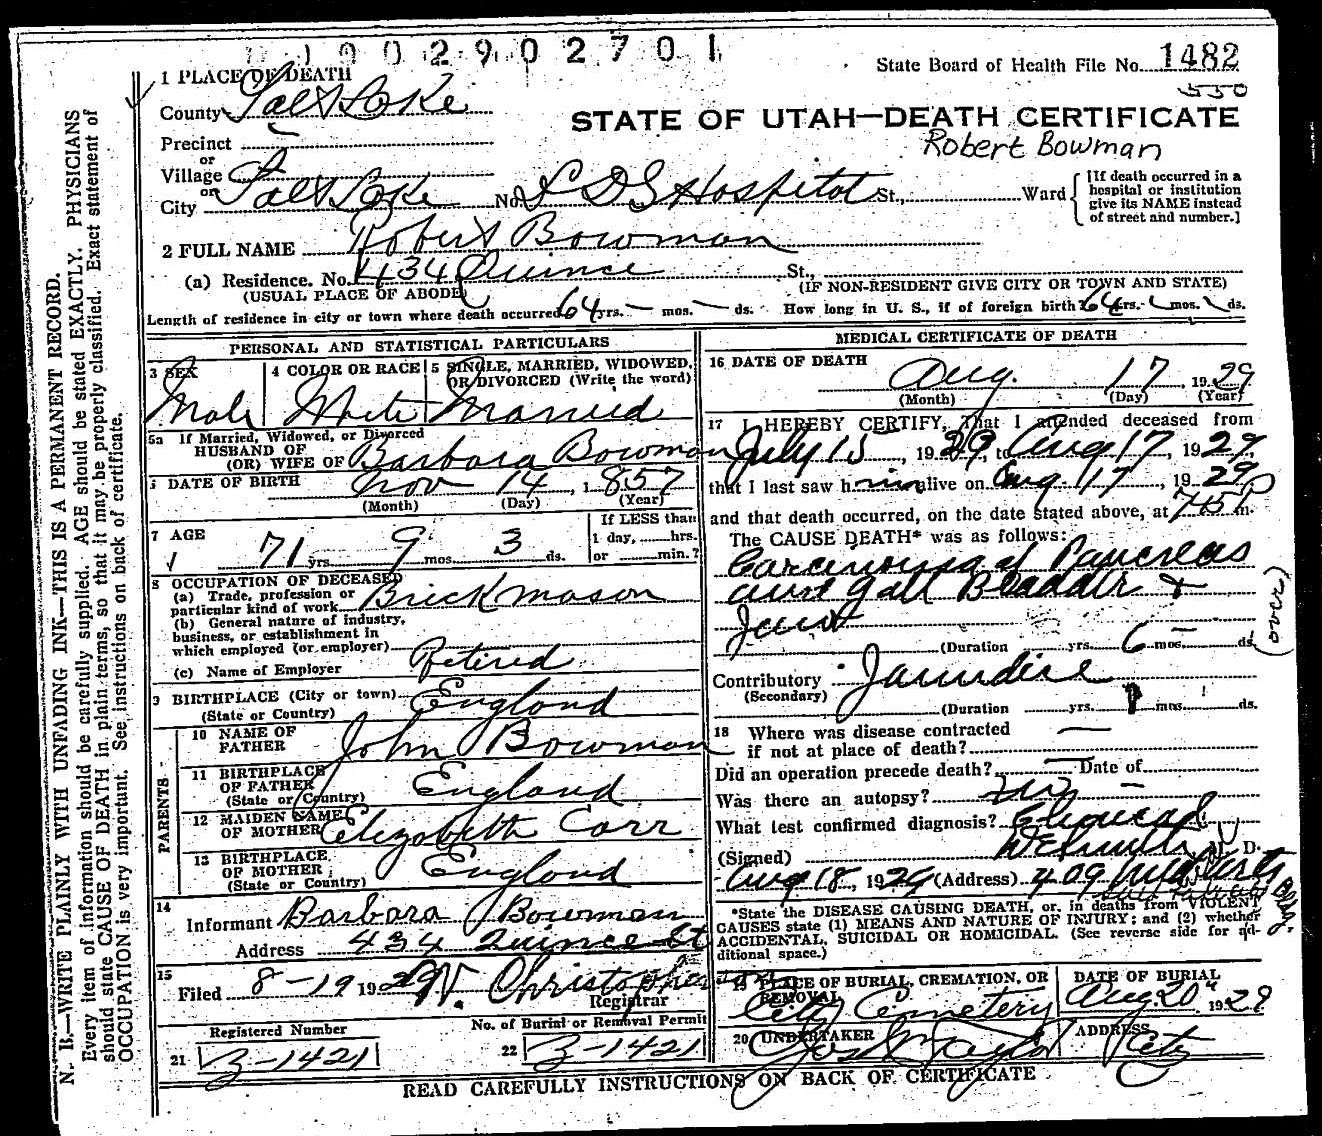 1902902701
State Board of Health File No. 1482
550
1 PLACE OF DEATH
County Salt Lake
STATE OF UTAH—DEATH CERTIFICATE
Robert Bowman
Precinct
or
Village
or
City Salt Lake No. L D S Hospital St., Ward
[If death occurred in a hospital or institution give its NAME instead of street and number.]
2 FULL NAME Robert Bowman
(a) Residence. No. 434 Quince St.,
(USUAL PLACE OF ABODE) (IF NON-RESIDENT GIVE CITY OR TOWN AND STATE)
Length of residence in city or town where death occurred 64 yrs. — mos. — ds. How long in U. S., if of foreign birth 64 yrs. - mos. - ds.
PERSONAL AND STATISTICAL PARTICULARS
3 SEX Male
4 COLOR OR RACE White
5 SINGLE, MARRIED, WIDOWED, OR DIVORCED (Write the word) Married
5a If Married, Widowed, or Divorced
HUSBAND OF
(OR) WIFE OF Barbara Bowman
DATE OF BIRTH Nov 14, 1857
(Month) (Day) (Year)
7 AGE 71 yrs. 9 mos. 3 ds.
If LESS than
1 day, hrs.
or min.?
8 OCCUPATION OF DECEASED
(a) Trade, profession or
particular kind of work Brick mason
(b) General nature of industry,
business, or establishment in
which employed (or employer) Retired
(c) Name of Employer
9 BIRTHPLACE (City or town) England
(State or Country)
PARENTS
10 NAME OF FATHER John Bowman
11 BIRTHPLACE OF FATHER England
(State or Country)
12 MAIDEN NAME OF MOTHER Elizabeth Carr
13 BIRTHPLACE OF MOTHER England
(State or Country)
14
Informant Barbara Bowman
Address 434 Quince St
15
Filed 8-19 1929 Christophersen
Registrar
Registered Number No. of Burial or Removal Permit
21 3-1421 22 3-1421
MEDICAL CERTIFICATE OF DEATH
16 DATE OF DEATH
Aug. 17, 1929
(Month) (Day) (Year)
17 I HEREBY CERTIFY, That I attended deceased from
July 15, 1929, to Aug 17, 1929,
that I last saw him alive on Aug 17, 1929
and that death occurred, on the date stated above, at 745 P m.
The CAUSE DEATH* was as follows:
Carcinoma of Pancreas
and gall Bladder &
(over)
(Duration yrs. 6 mos. — ds.
Contributory Jaundice
(Secondary)
(Duration yrs. mos. ds.
18 Where was disease contracted
if not at place of death? —
Did an operation precede death? — Date of
Was there an autopsy? —
What test confirmed diagnosis? Clinical
(Signed) M. D.
Aug 18, 1929 (Address) 409
*State the DISEASE CAUSING DEATH, or, in deaths from VIOLENT
CAUSES state (1) MEANS AND NATURE OF INJURY; and (2) whether
ACCIDENTAL, SUICIDAL OR HOMICIDAL. (See reverse side for ad-
ditional space.)
19 PLACE OF BURIAL, CREMATION, OR REMOVAL
City Cemetery
DATE OF BURIAL
Aug 20", 1929
20 UNDERTAKER
Jos Wm Taylor
ADDRESS
City
READ CAREFULLY INSTRUCTIONS ON BACK OF CERTIFICATE
N. B.—WRITE PLAINLY WITH UNFADING INK—THIS IS A PERMANENT RECORD.
Every item of information should be carefully supplied. AGE should be stated EXACTLY. PHYSICIANS
should state CAUSE OF DEATH in plain terms, so that it may be properly classified. Exact statement of
OCCUPATION is very important. See instructions on back of certificate.